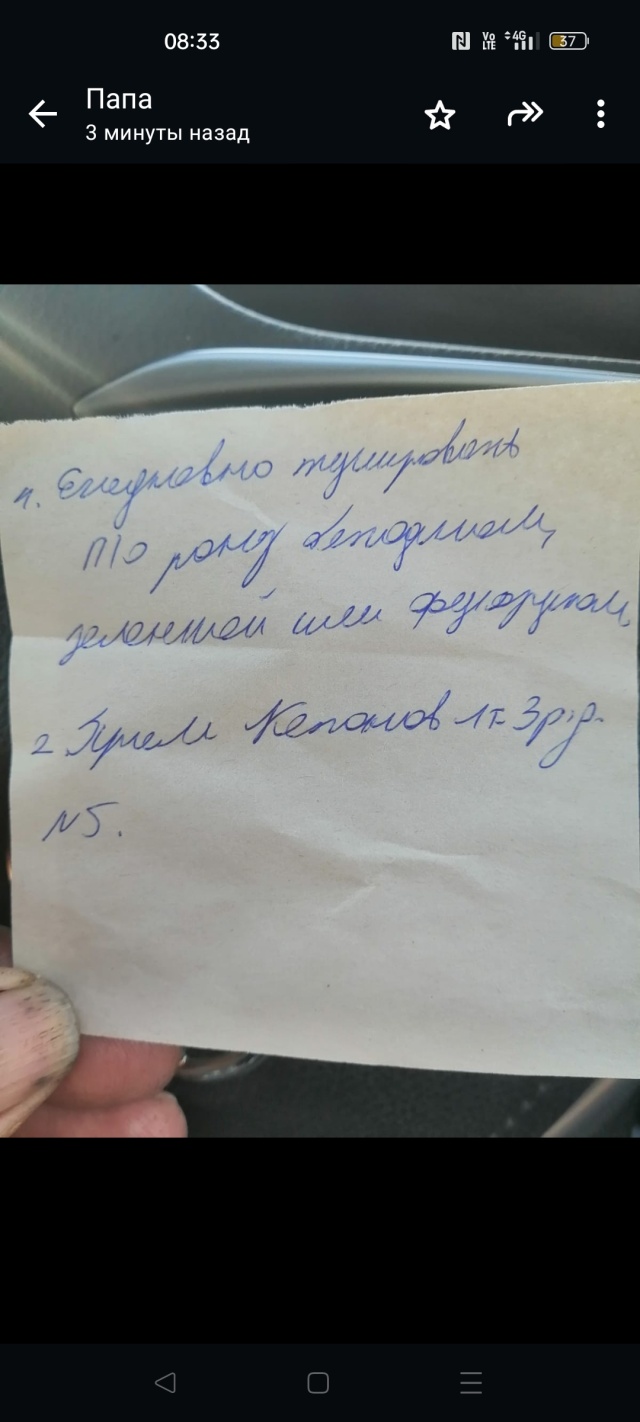 08:33
Vo LTE 4G 37
Папа
3 минуты назад
1. Ежедневно тушировать
п/о рану бетадином,
зеленкой или фукорцином,
2. Прием Кетонов 1т 3р/д.
N5.